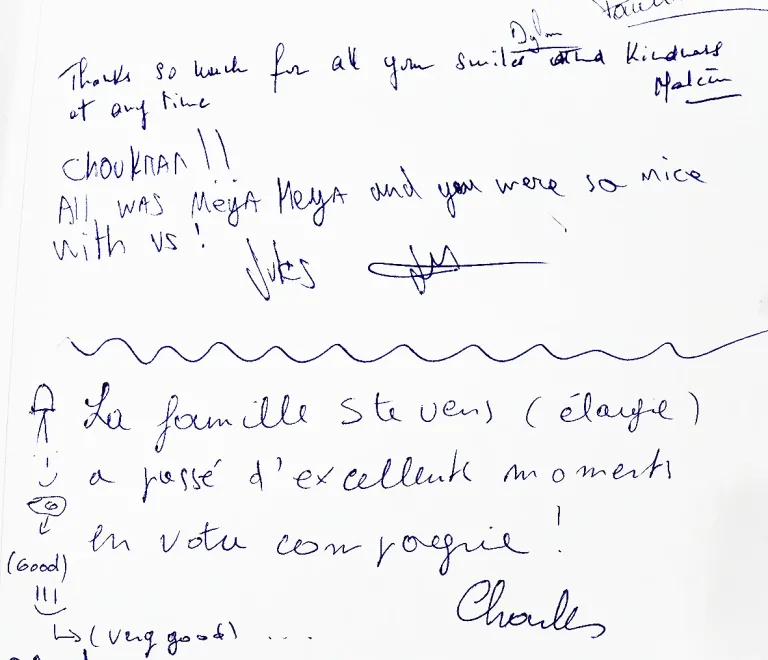 Dylan
Thanks so much for all your smiles and Kindness
at any time
Malcin
CHOUKRAN !!
All WAS MEYA MEYA and you were so nice
With US !
Jules
La famille Stevens (élargie)
a passé d'excellents moments
en votre compagnie !
(Good)
Charles
(very good) ...